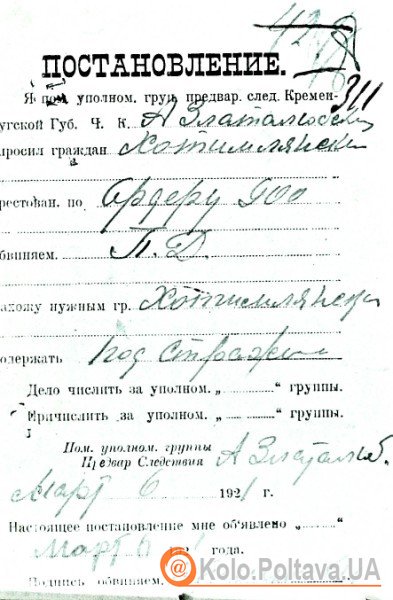 ПОСТАНОВЛЕНИЕ.
311
Я пом. уполном. груп. предвар. след. Кремен-
угской Губ. Ч. К. А Златапольский
просил граждан Хотимлянски
рестован. по Ордеру 900
бвиняем. П. Д.
ахожу нужным гр. Хотимлянски
одержать под стражи
Дело числить за уполном. „ “ группы.
Причислить за уполном. „ “ группы.
Пом. уполном. группы
Предвар Следствия А Златапо
Март 6 1921 г.
Настоящее постановление мне объявлено „ “
Март 6 1 года.
Подпись обвиняем.
@ Kolo.Poltava.UA